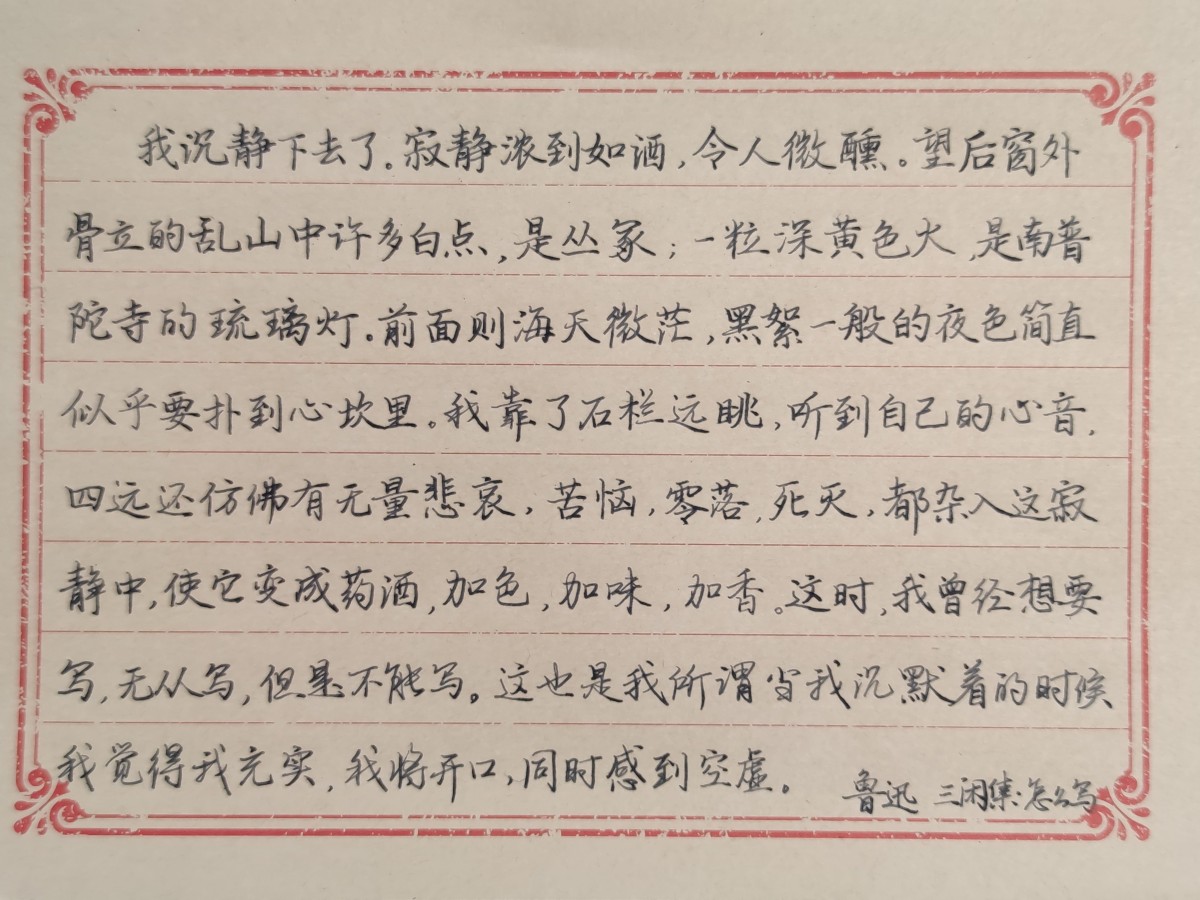 我沉静下去了。寂静浓到如酒，令人微醺。望后窗外
骨立的乱山中许多白点，是丛冢；一粒深黄色火，是南普
陀寺的琉璃灯。前面则海天微茫，黑絮一般的夜色简直
似乎要扑到心坎里。我靠了石栏远眺，听到自己的心音，
四远还仿佛有无量悲哀，苦恼，零落，死灭，都杂入这寂
静中，使它变成药酒，加色，加味，加香。这时，我曾经想要
写，无从写，但是不能写。这也是我所谓当我沉默着的时候
我觉得我充实，我将开口，同时感到空虚。
鲁迅 三闲集·怎么写